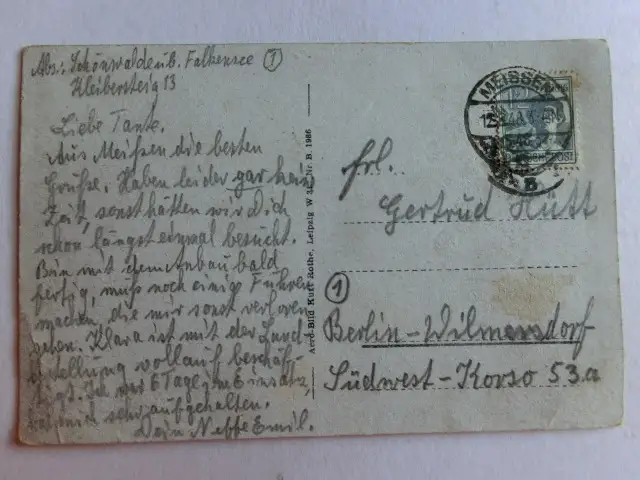 Abs: Schönwalde üb. Falkensee (1)
Kleibersteig 13
Liebe Tante.
Aus Meißen die besten
Grüße. Haben leider gar kein
Zeit, sonst hätten wir Dich
schon längst einmal besucht.
Bin mit dem Anbau bald
fertig, muss noch einige Fuhren
machen, die mir sonst verloren
gehen. Klara ist mit der Land-
bestellung vollauf beschäf-
tigt. 6 Tage im Einsatz,
sehr aufgehalten.
Dein Neffe Emil.
Aero-Bild Kurt Rothe, Leipzig W 34, Nr. B. 1986
MEISSEN
POST
Frl.
Gertrud Hütt
(1)
Berlin-Wilmersdorf
Südwest-Korso 53.a